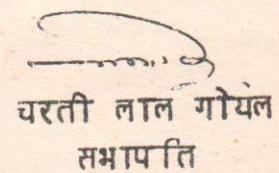 चरती लाल गोयल
सभापति